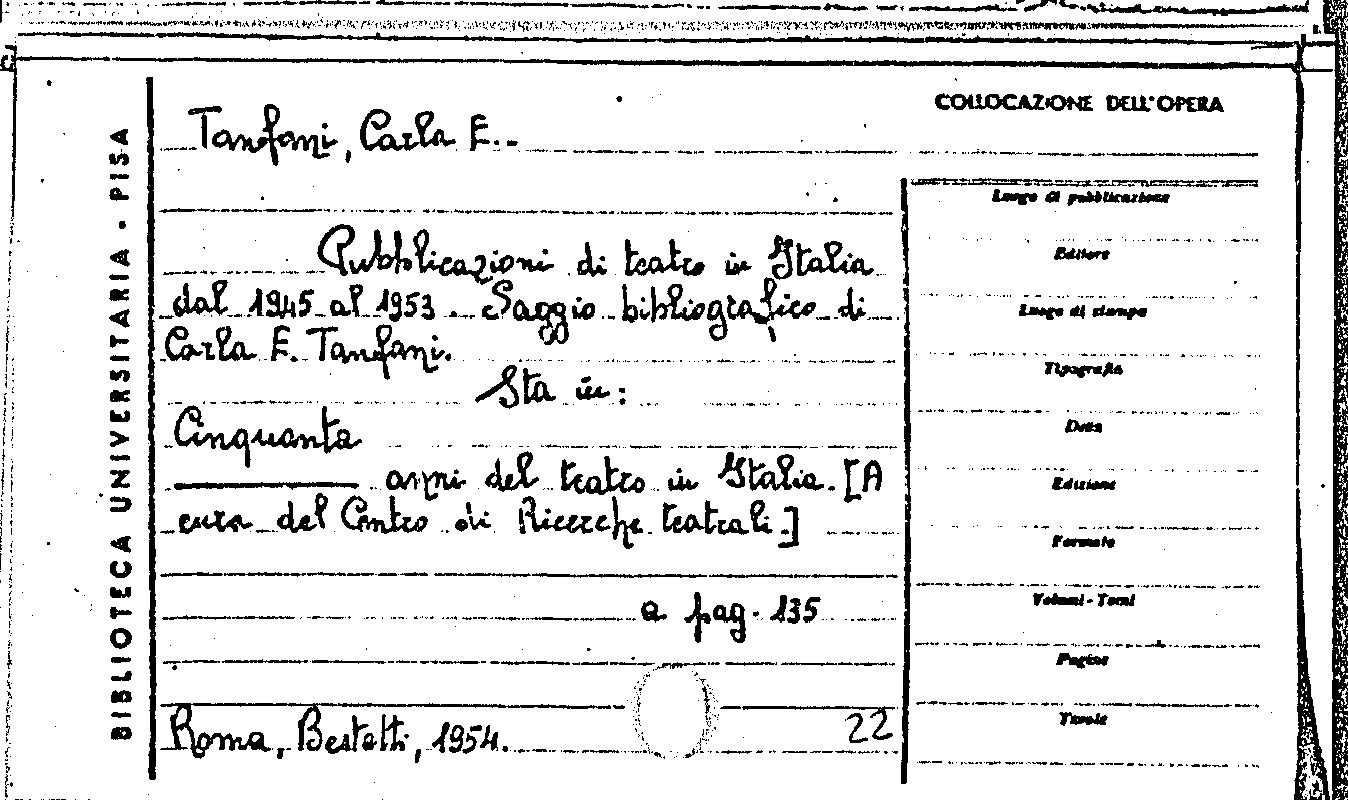 COLLOCAZIONE DELL'OPERA
BIBLIOTECA UNIVERSITARIA - PISA
Tanfani, Carla E.-
Pubblicazioni di teatro in Italia
dal 1945 al 1953. Saggio bibliografico di
Carla E. Tanfani.
Sta in:
Cinquanta
anni del teatro in Italia. [A
cura del Centro di Ricerche teatrali.]
a pag. 135
Roma, Bestetti, 1954.
22
Luogo di pubblicazione
Editore
Luogo di stampa
Tipografia
Data
Edizione
Formato
Volumi - Tomi
Pagine
Tavole